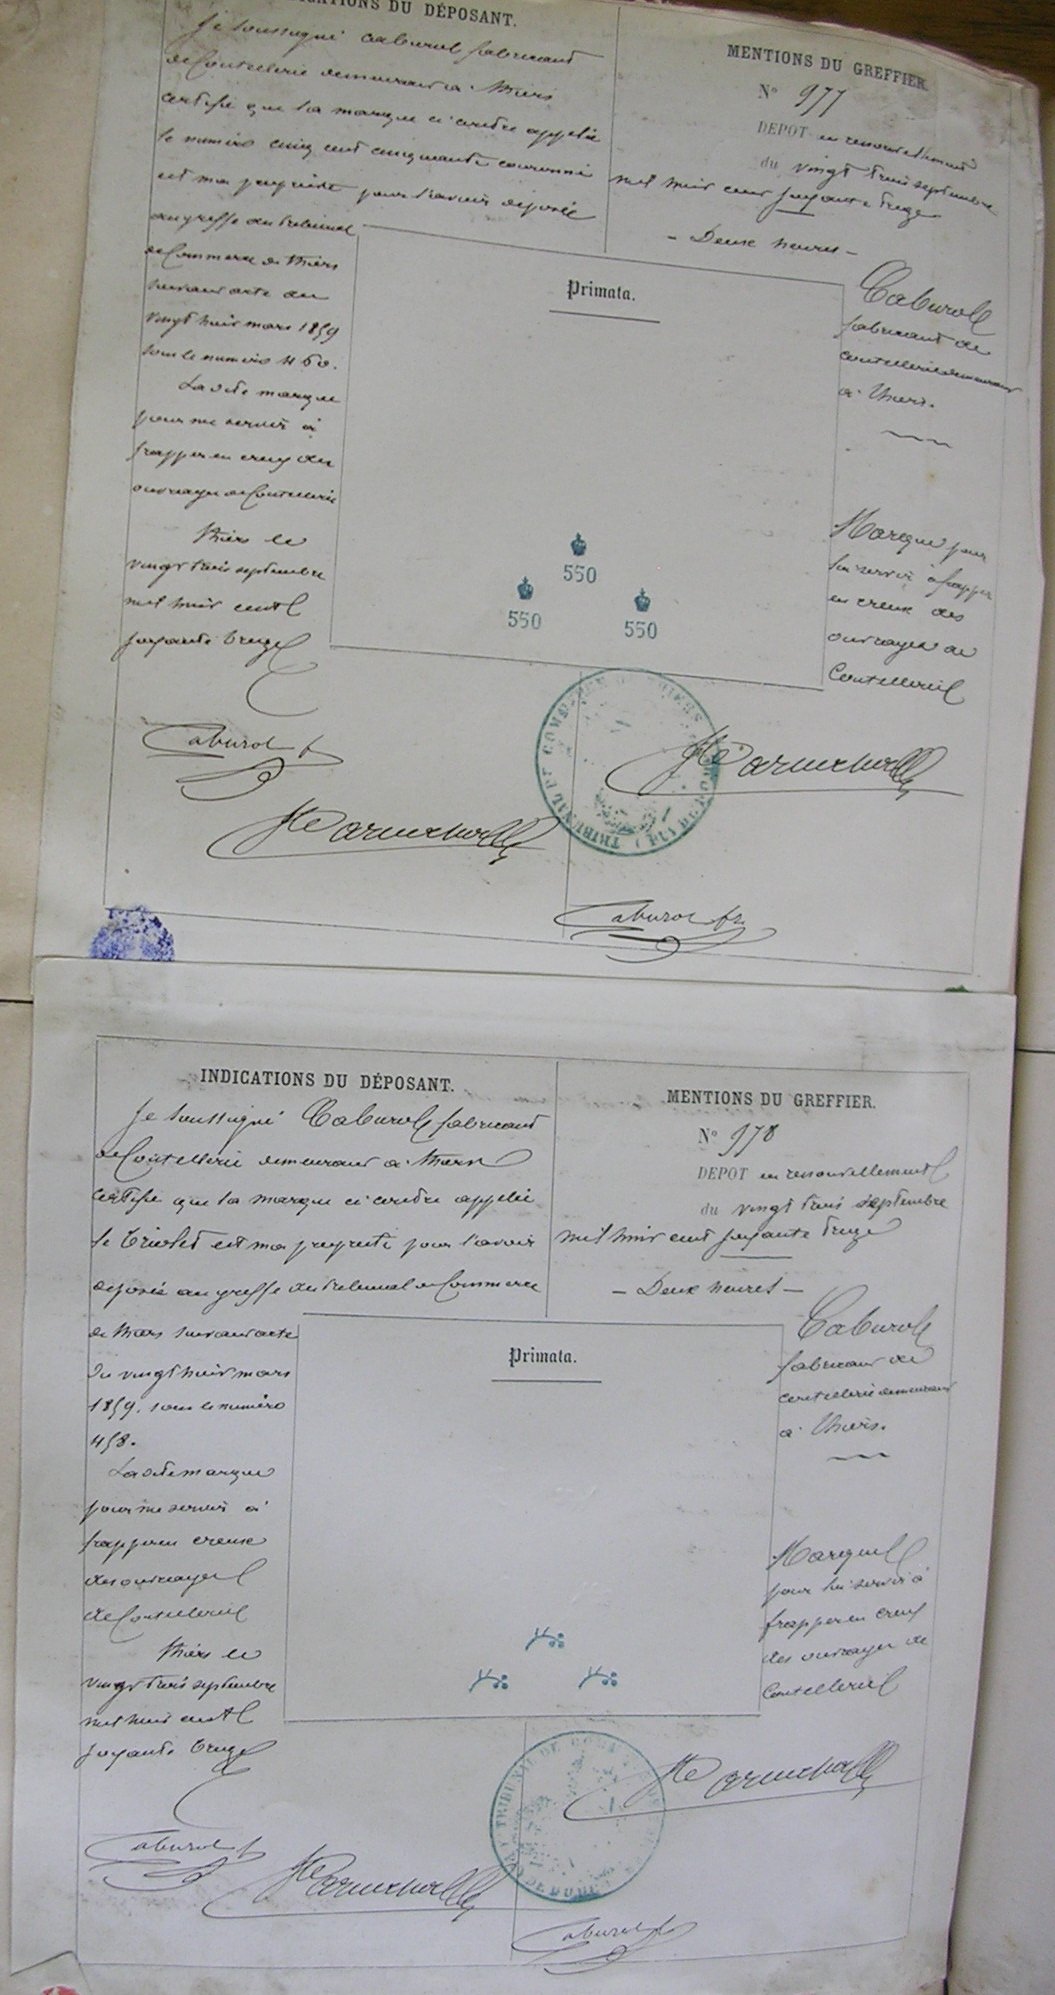 INDICATIONS DU DÉPOSANT.
Je soussigné Caburol fabricant
de Coutellerie demeurant à Thiers
certifie que la marque ci contre appelée
le numéro cinq cent cinquante couronné
est ma propriété pour l'avoir déposée
au greffe du tribunal
de Commerce de Thiers
suivant acte du
vingt huit mars 1859
sous le numéro 460.
La dite marque
pour me servir à
frapper en creux des
ouvrages de Coutellerie
Thiers le
vingt trois septembre
mil huit cent
soixante treize
Caburol
MENTIONS DU GREFFIER.
N° 977
DEPOT en renouvellement
du vingt trois septembre
mil huit cent soixante treize
- Deux heures -
Primata.
Caburol
fabricant de
coutellerie demeurant
à Thiers.
Marque pour
lui servir à frapper
en creux des
ouvrages de
Coutellerie
550
550
550
TRIBUNAL DE COMMERCE DE THIERS
Caburol
INDICATIONS DU DÉPOSANT.
Je soussigné Caburol fabricant
de Coutellerie demeurant à Thiers
certifie que la marque ci contre appelée
le triolet est ma propriété pour l'avoir
déposée au greffe du tribunal de Commerce
de Thiers suivant acte
du vingt huit mars
1859. sous le numéro
458.
La dite marque
pour me servir à
frapper en creux
des ouvrages
de Coutellerie
Thiers le
vingt trois septembre
mil huit cent
soixante treize
Caburol
MENTIONS DU GREFFIER.
N° 978
DEPOT en renouvellement
du vingt trois septembre
mil huit cent soixante treize
- Deux heures -
Primata.
Caburol
fabricant de
coutellerie demeurant
à Thiers.
Marque
pour lui servir à
frapper en creux
des ouvrages de
Coutellerie
TRIBUNAL DE COMMERCE
Caburol